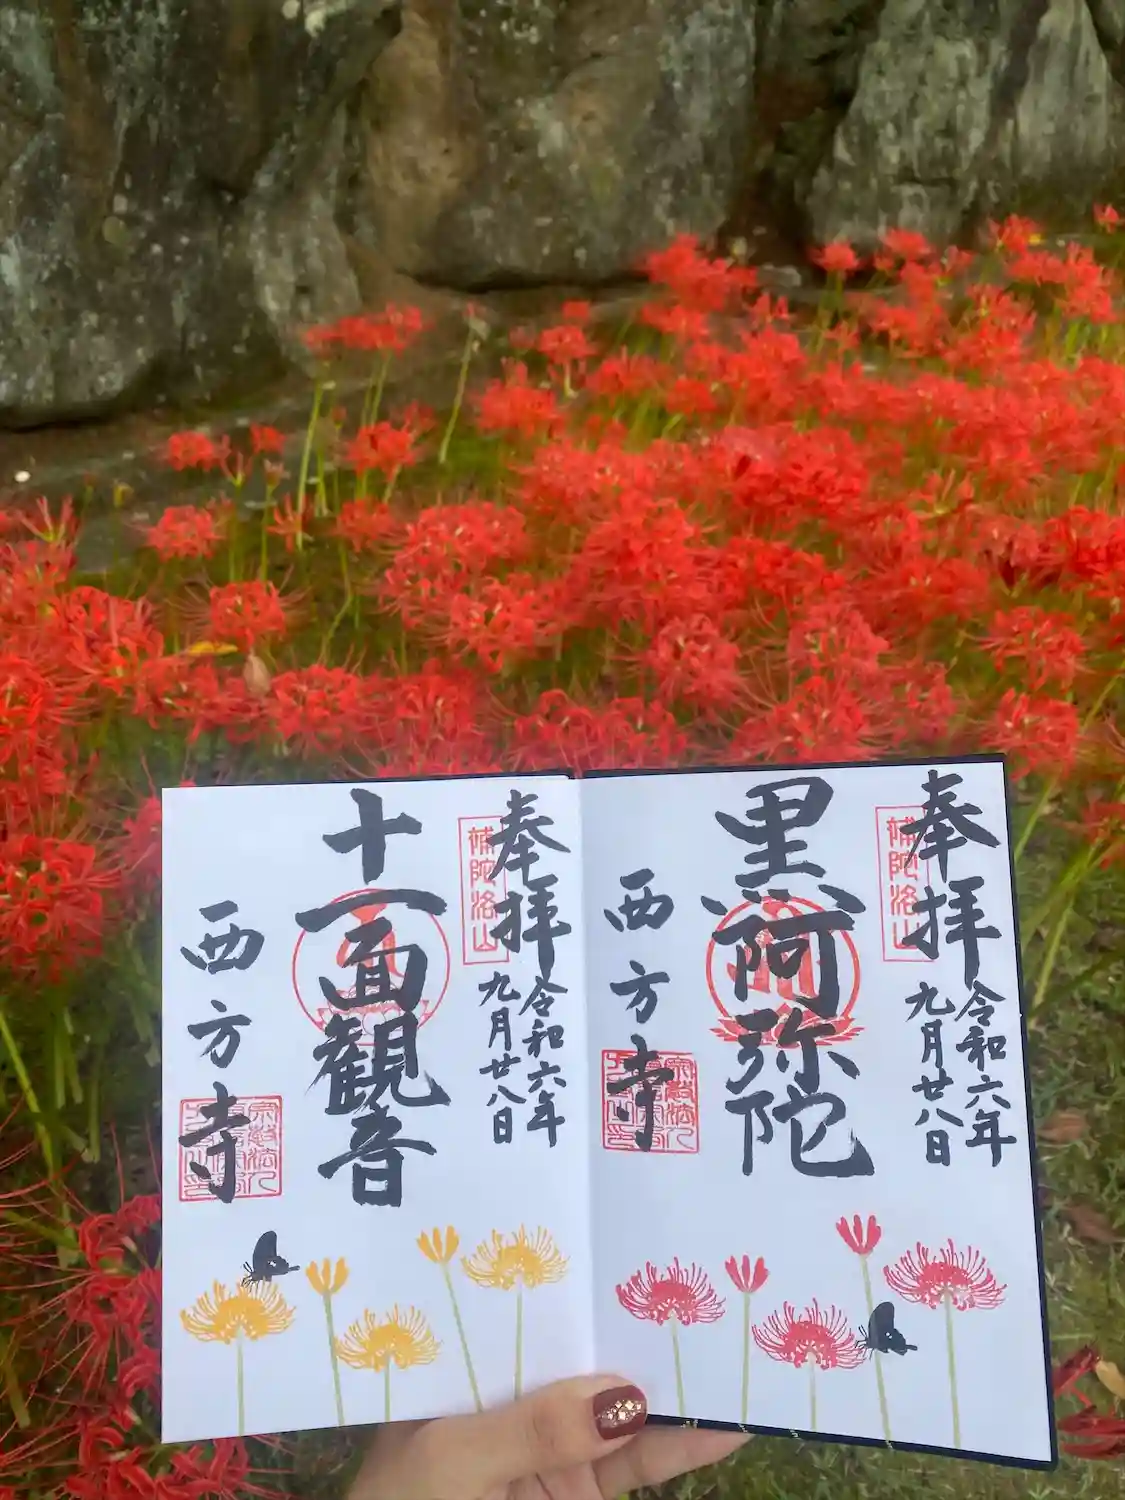 奉拝
補陀洛山
令和六年
九月廿八日
黒阿弥陀
西方寺
奉拝
補陀洛山
令和六年
九月廿八日
十一面観音
西方寺